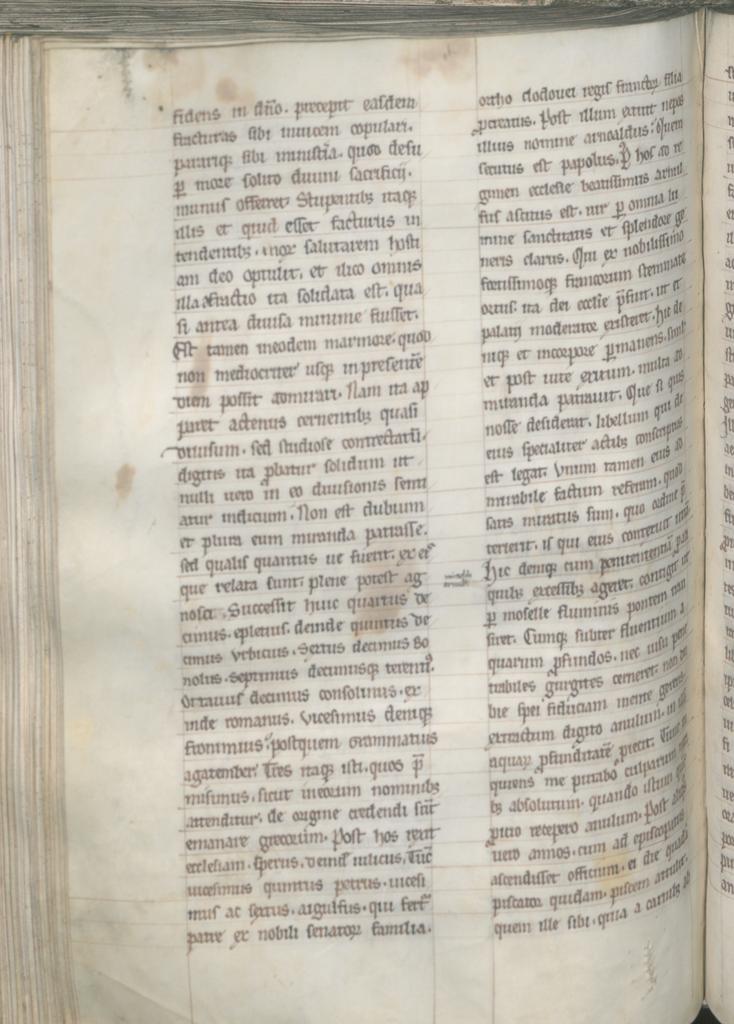 fidens in dño. precepit easdem
fracturas sibi inuicem copulari.
pararique sibi ministĩa. quo d͂e desu
ꝑ more solito diuini sacrificij.
munus offerret. Stupentibꝫ itaqꝫ
illis et quid esset facturus in
tendentibꝫ. mox salutarem hosti
am deo optulit. et ilico omnis
illa fractio ita solidata est. qua
si antea diuisa minime fuisset.
Est tamen ineodem marmore. quod
non mediocriter usqꝫ in presentē
diem possit admirari. Nam ita ap
paret actenus cernentibꝫ quasi
diuisum. sed studiose contrectatū.
digitis ita ꝓbatur solidum ut
nulli uero in eo diuisionis senti
atur indicium. Non est dubium
et plura eum miranda patrasse.
sed qualis quantus ue fuerit. ex eis
que relata sunt. plene potest ag
nosci. Successit huic quartus de
cimus. epletius. deinde quintus de
cimus vrbicius. Sextus decimus bo
nolus. septimus decimusqꝫ terentiꝰ.
Octauus decimus consolinus. ex
inde romanus. vicesimus deniqꝫ
fronimius. postquem grammatius
agatenber. Tres itaqꝫ isti. quos p̄
misimus. sicut ineorum nominibꝫ
attenditur. de origine credendi sūt
emanare grecorum. Post hos rexit
ecclesiam. sperus. deinđ iulicus. Tūc
uicesimus quintus petrus. uicesi
mus ac sextus. aigulfus. qui fert̃
patre ex nobili senatorꝝ familia.
ortho clodouei regis francorꝝ filia
ꝓcreatus. Post illum extitit nepos
illius nomine arnoaldus. Quem
secutus est papolus. P̃ hos ad re
gimen ecclesie beatissimus arnul
fus ascitus est. uir ꝑ omnia lu
mine sanctitatis et splendore ge
neris clarus. Qui ex nobilissimo
fortissimoqꝫ francorum stemmate
ortus. ita dei ecclie p̄fuit. ut et
palatij moderator existeret. Hic de
niqꝫ et incorpore ꝑmanens. simul
et post uite exitum. multa ad
miranda patrauit. Que si quis
nosse desiderat. libellum qui de
eius specialiter actibꝫ conscriptus
est legat. Vnum tamen eius ad
mirabile factum referam. quod
satis miratus sum. quo ordine p̄
terierit. is qui eius contexuit uitā.
Hic deniqꝫ cum penitentenciā pro
quibꝫ excessibꝫ ageret. contigit ut
ꝑ moselle fluminis pontem tran
siret. Cumqꝫ subter fluentium a
quarum ꝓfundos. nec uisu pene
trabiles gurgites cerneret. non du
bie spei fiduciam mente gerens.
extractum digito anulum. in illā
aquarꝫ ꝓfunditatē piecit. Tunc in
quiens me putabo culparum
bꝫ absolutum. quando istum quē
ꝓicio recepero anulum. Post aliqđ
uero annos. cum ad episcopatus
ascendisset officium. ei die quadā
piscator quidam. piscem attulit.
quem ille sibi. quia a carnibꝫ ab